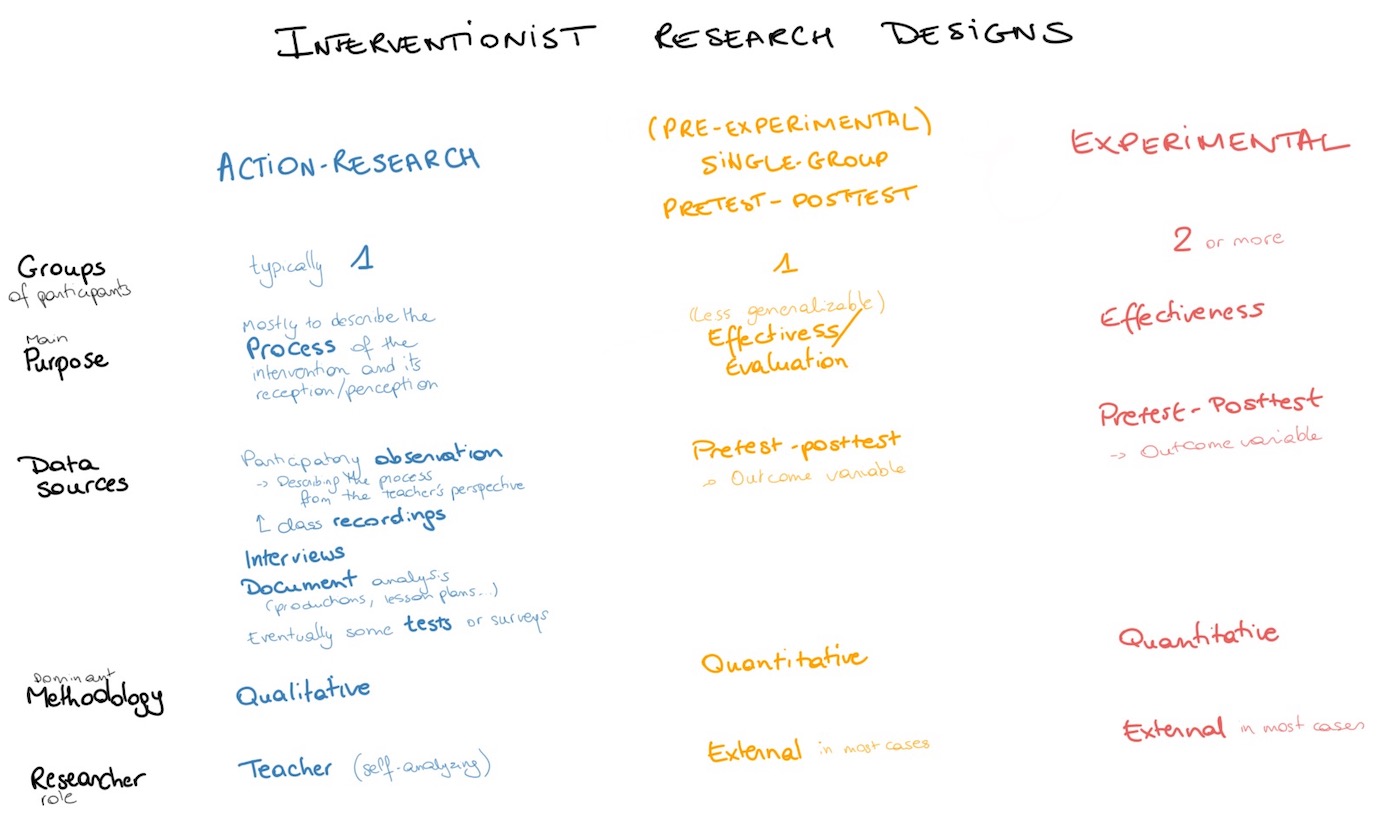 INTERVENTIONIST RESEARCH DESIGNS
ACTION-RESEARCH
(PRE-EXPERIMENTAL)
SINGLE-GROUP
PRETEST-POSTTEST
EXPERIMENTAL
Groups
of participants
typically 1
1
2 or more
Main
Purpose
Mostly to describe the
Process of the
intervention and its
reception/perception
(Less generalizable)
Effectivess/
Evaluation
Effectiveness
Data
sources
Participatory observation
-> Describing the process
from the teacher's perspective
↑ class recordings
Interviews
Document analysis
(productions, lesson plans...)
Eventually some tests or surveys
Pretest-posttest
-> Outcome variable
Pretest-Posttest
-> Outcome variable
Dominant
Methodology
Qualitative
Quantitative
Quantitative
Researcher
role
Teacher (self-analyzing)
External in most cases
External in most cases